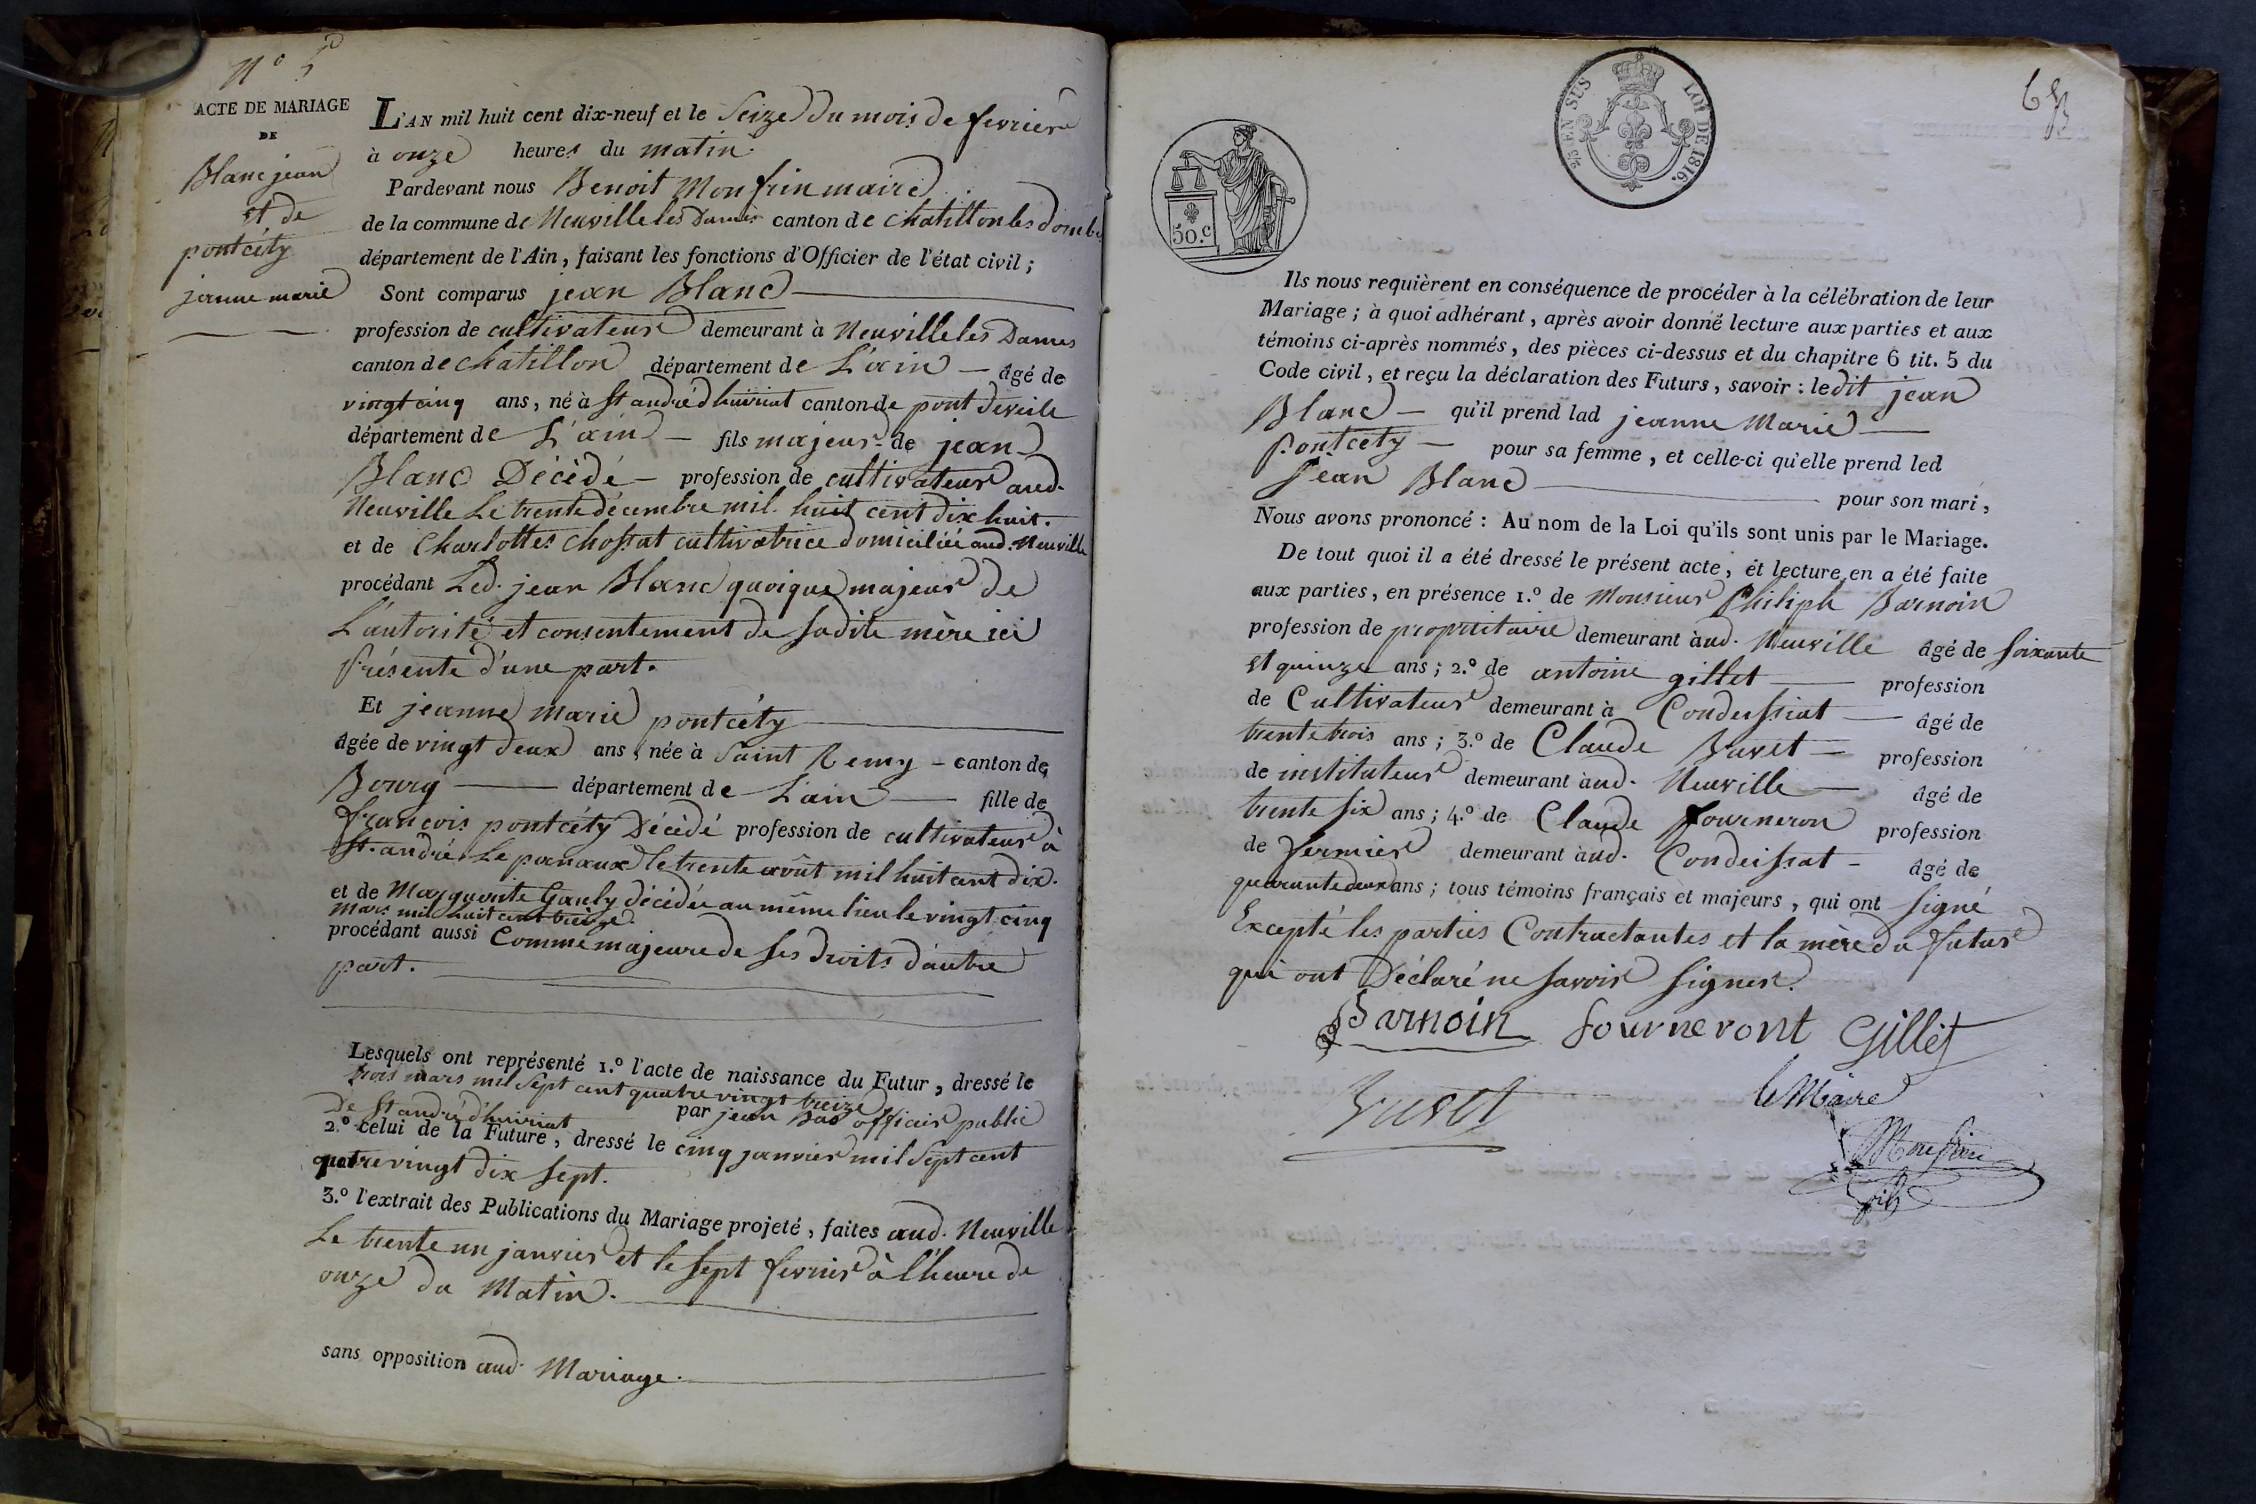 N° 5
ACTE DE MARIAGE
DE
Blanc jean
et de
pontcéty
jeanne marie
L'AN mil huit cent dix-neuf et le Seize du mois de fevrier
à onze heures du matin.
Pardevant nous Benoit Monfrin maire
de la commune de Neuville les Dames canton de chatillon les dombes
département de l'Ain, faisant les fonctions d'Officier de l'état civil;
Sont comparus jean Blanc
profession de cultivateur demeurant à Neuville les Dames
canton de chatillon département de L'ain âgé de
vingt cinq ans, né à St andré d'huiriat canton de pont de veile
département de L'ain fils majeur de jean
Blanc Décédé profession de cultivateur aud.
Neuville Le trente décembre mil huit cent dix huit.
et de Charlottes chossat cultivatrice domiciliée aud. Neuville
procédant Led. jean Blanc quoique majeur de
L'autorité et consentement de sadite mère ici
présente d'une part.
Et jeanne marie pontcéty
âgée de vingt deux ans, née à Saint Remy canton de
Bourg département de L'ain fille de
françois pontcéty Décédé profession de cultivateur à
St. andré Le panaux le trente août mil huit cent dix.
et de Marguerite Gauly décédée au même lieu le vingt cinq
mars mil huit cent treize.
procédant aussi Comme majeure de ses droits d'autre
part.
Lesquels ont représenté 1.° l'acte de naissance du Futur, dressé le
trois mars mil Sept cent quatre vingt treize
De St andré d'huiriat par jean Bas officier public
2.° celui de la Future, dressé le cinq janvier mil Sept cent
quatre vingt dix sept.
3.° l'extrait des Publications du Mariage projeté, faites aud. Neuville
Le trente un janvier et le sept fevrier à l'heure de
onze du Matin.
sans opposition aud. Mariage.
5/5 EN SUS LOI DE 1816.
50.c
Ils nous requièrent en conséquence de procéder à la célébration de leur
Mariage; à quoi adhérant, après avoir donné lecture aux parties et aux
témoins ci-après nommés, des pièces ci-dessus et du chapitre 6 tit. 5 du
Code civil, et reçu la déclaration des Futurs, savoir: ledit jean
Blanc qu'il prend lad jeanne Marie
Pontcéty pour sa femme, et celle-ci qu'elle prend led
Jean Blanc pour son mari,
Nous avons prononcé: Au nom de la Loi qu'ils sont unis par le Mariage.
De tout quoi il a été dressé le présent acte, et lecture en a été faite
aux parties, en présence 1.° de Monsieur Philiph Barnoin
profession de propriétaire demeurant à aud. Neuville âgé de soixante
et quinze ans; 2.° de antoine gillet profession
de Cultivateur demeurant à Condeissiat âgé de
trente trois ans; 3.° de Claude Buvet profession
de instituteur demeurant à aud. Neuville âgé de
trente six ans; 4.° de Claude fourneron profession
de fermier demeurant à aud. Condeissat âgé de
quarante deux ans; tous témoins français et majeurs, qui ont signé
Excepté les parties Contractantes et la mère du futur
qui ont Déclaré ne savoir signer.
Barnoin fourneront Gillet
Buvet le Maire
Monfrin